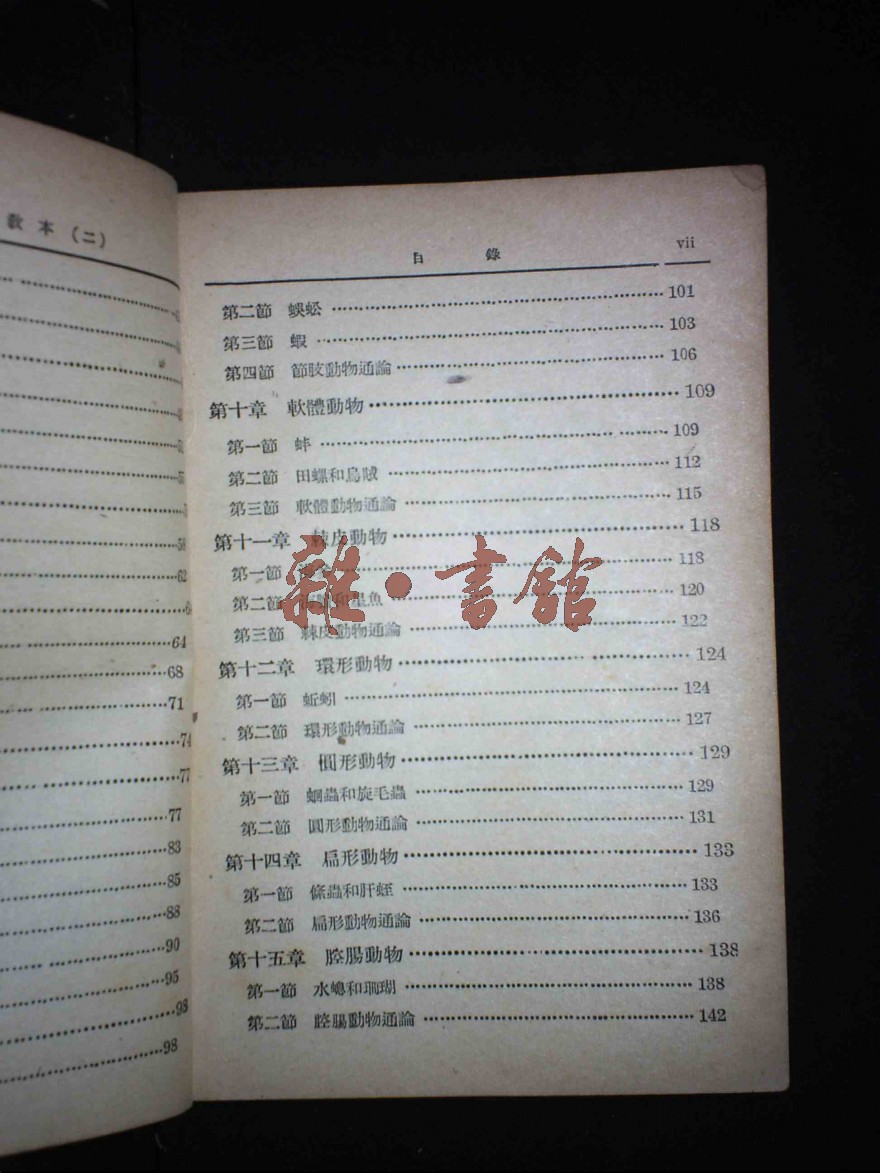 教本(二)
64
68
71
74
77
77
83
85
88
90
95
98
98
目錄 vii
第二節 蜈蚣 101
第三節 蝦 103
第四節 節肢動物通論 106
第十章 軟體動物 109
第一節 蚌 109
第二節 田螺和烏賊 112
第三節 軟體動物通論 115
第十一章 棘皮動物 118
第一節 118
第二節 和星魚 120
第三節 棘皮動物通論 122
第十二章 環形動物 124
第一節 蚯蚓 124
第二節 環形動物通論 127
第十三章 圓形動物 129
第一節 蛔蟲和旋毛蟲 129
第二節 圓形動物通論 131
第十四章 扁形動物 133
第一節 條蟲和肝蛭 133
第二節 扁形動物通論 136
第十五章 腔腸動物 138
第一節 水螅和珊瑚 138
第二節 腔腸動物通論 142
雜·書館